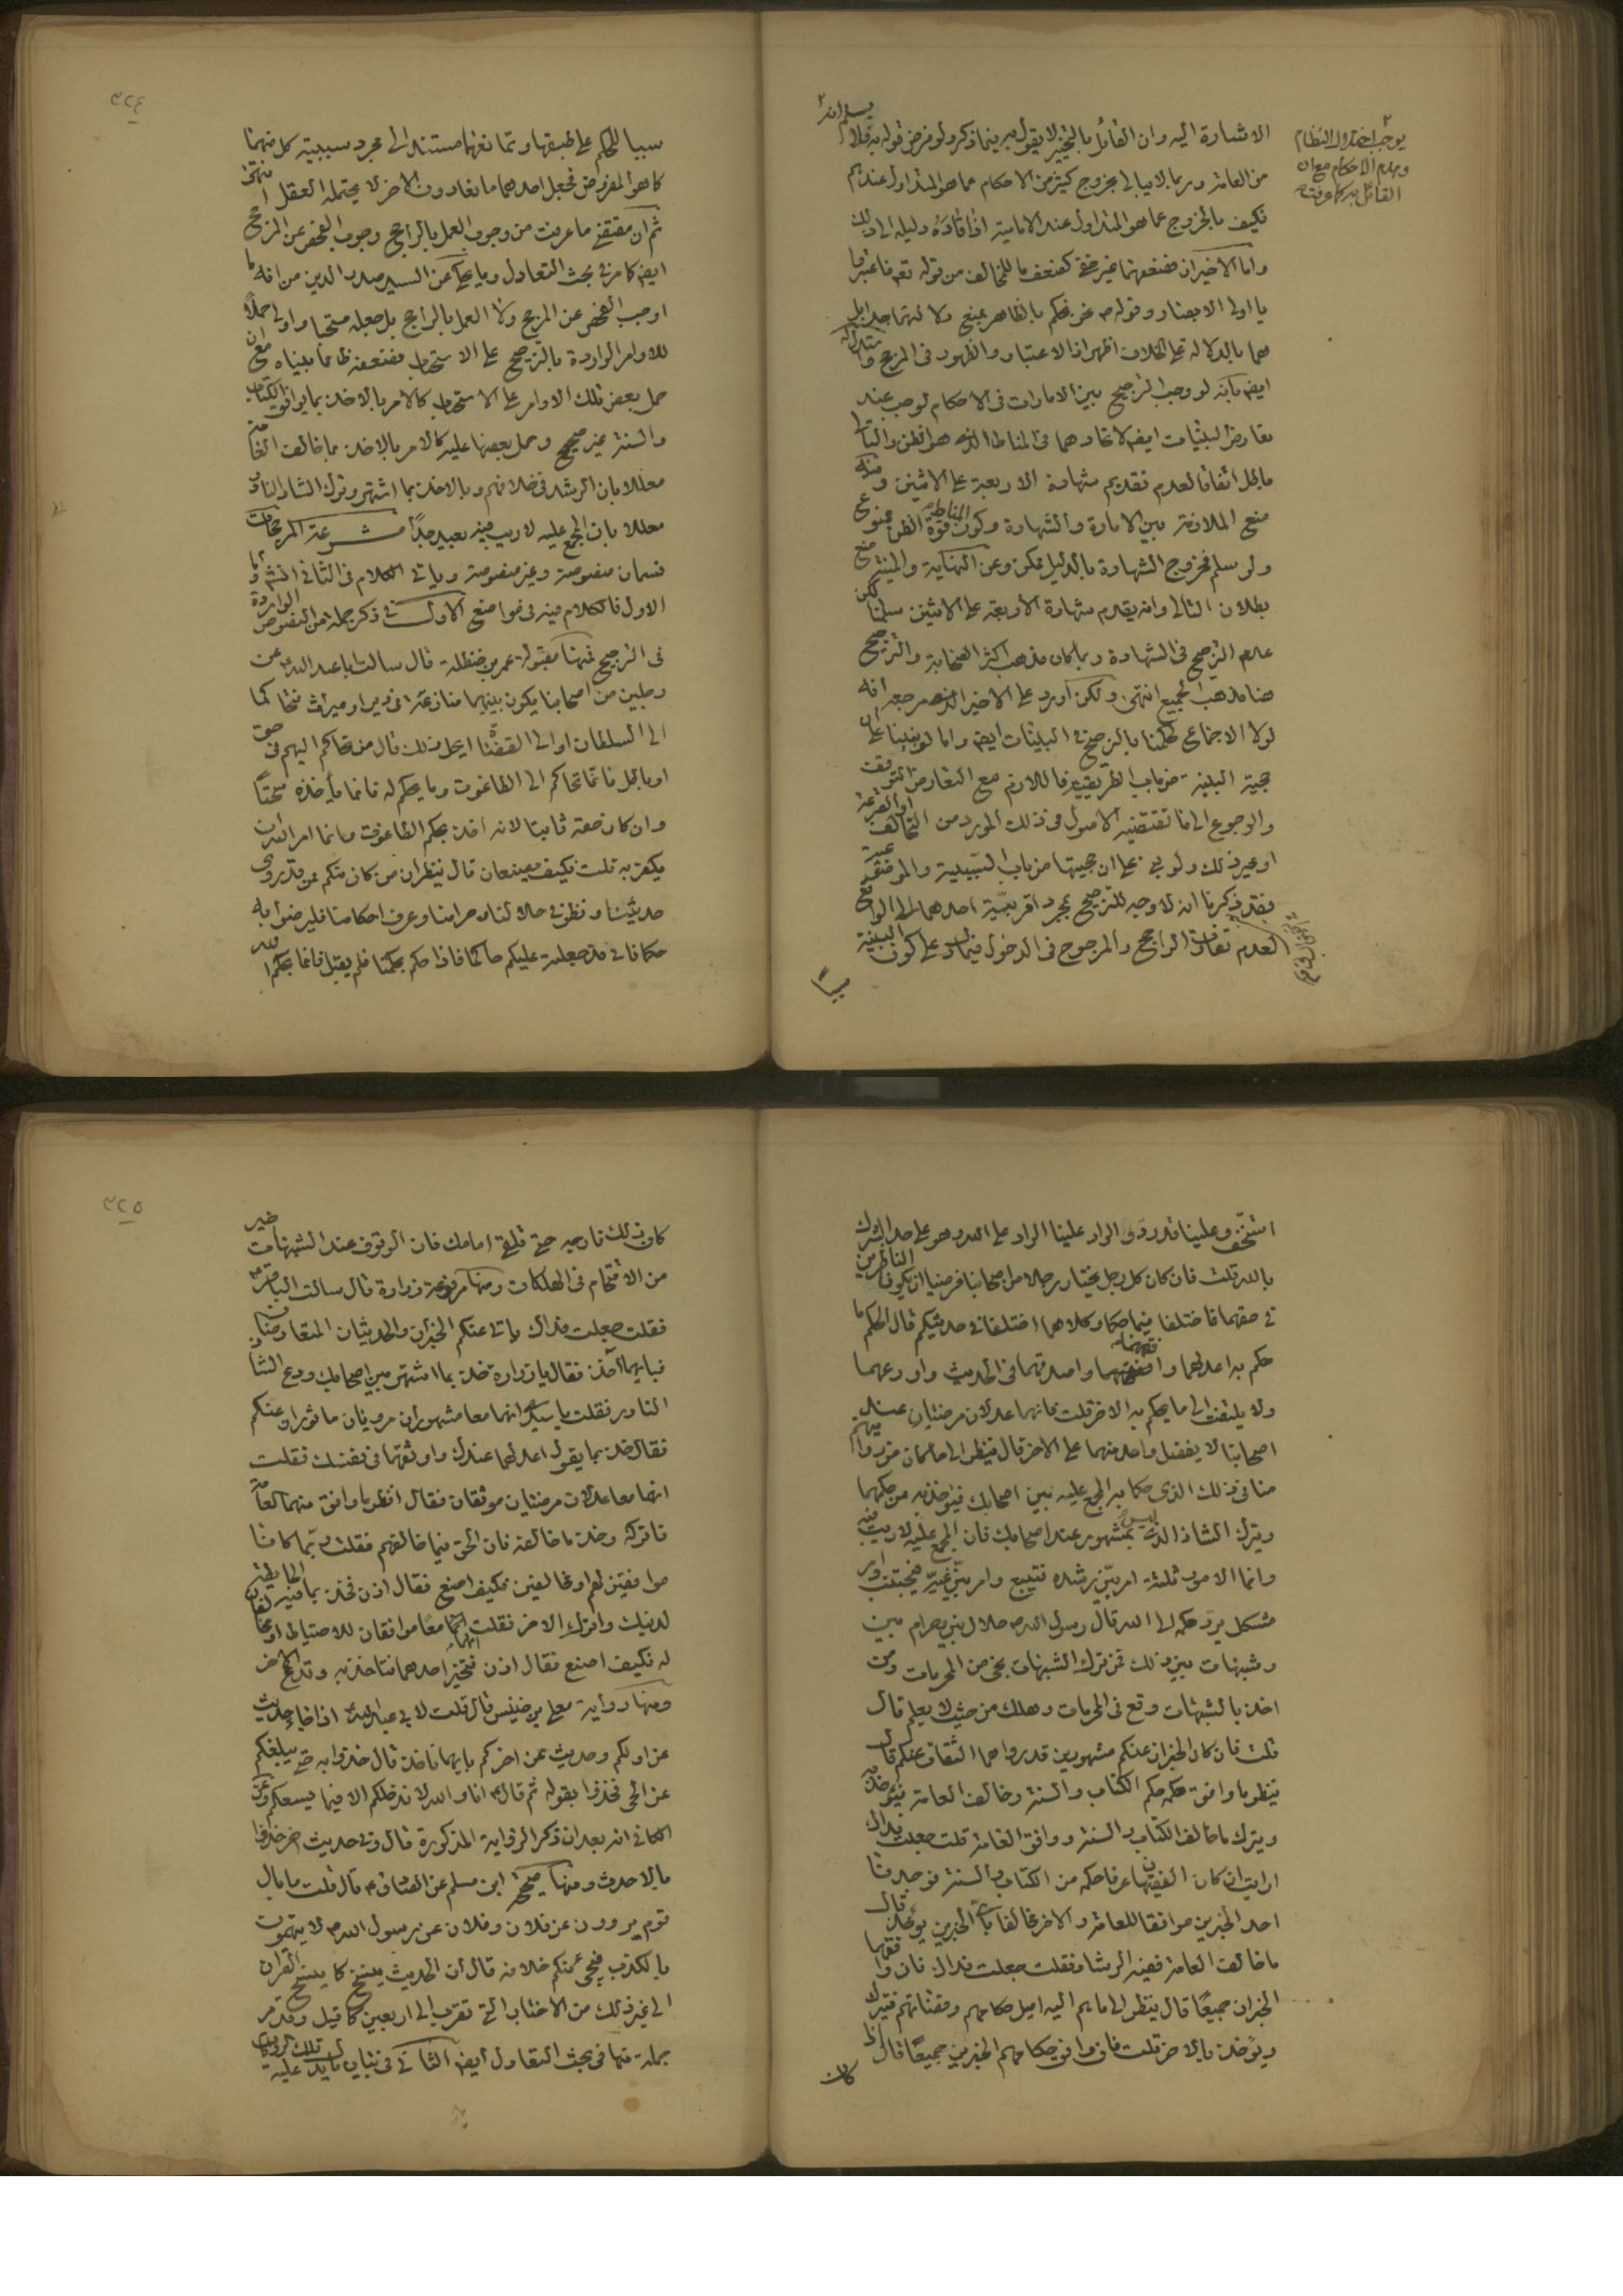 الاشارة اليه وان القائل بالتخيير لا يقول به فيما ذكر ولو فرض قوله به فلا
يوجب اختلال النظام
وهدم الاحكام مع ان
القائل به كما عرفت
من العامة وربما لا يبالي بخروج كثير من الاحكام عما هو المتداول عندهم
فكيف بالخروج عما هو المتداول عند الامامية اذا قاده دليله الى ذلك
واما الاخيران فضعفهما غير خفي كضعف ما للمخالف من قوله تعم فاعتبروا
يا اولي الابصار وقوله ص نحن نحكم بالظاهر لمنع دلالتهما جدا بل
هما بالدلالة على الخلاف اظهر اذ الاعتبار والظهور في المرجح واستدلاله
ايضا بانه لو وجب الترجيح بين الامارات في الاحكام لوجب عند
تعارض البينات ايضا لاتحادهما في المناط الذي هو الظن والتالي
باطل اتفاقا لعدم تقديم شهادة الاربعة على الاثنين وفيه
منع الملازمة بين الامارة والشهادة وكون المناط قوة الظن ممنوع
ولو سلم فخروج الشهادة بالدليل ممكن وعن النهاية والمنية منع
بطلان التالي وانه يقدم شهادة الاربعة على الاثنين سلمنا لكن
عدم الترجيح في الشهادة ربما كان مذهب اكثر الصحابة والترجيح
هنا مذهب الجميع انتهى ولكن اورد على الاخير الذي مرجعه انه
لولا الاجماع لحكمنا بالترجيح في البينات ايضا وانا لو بنينا على ان
حجية البينة من باب الطريقية فاللازم مع التعارض التوقف
والرجوع الى ما تقتضيه الاصول في ذلك المورد من التحالف او القرعة
او غير ذلك ولو بني على ان حجيتها من باب السببية والموضوعية
فقد ذكرنا انه لا وجه للترجيح بمجرد اقربية احدهما الى الواقع
لعدم تفاوت الراجح والمرجوح في الدخول فيما دل على كون البينة
سببا
٣٢٤
سببا للحكم على طبقها وتمانعهما مستند الى مجرد سببية كل منهما
كما هو المفروض فجعل احدهما مانعا دون الاخر لا يحتمله العقل انتهى
ثم ان مقتضى ما عرفت من وجوب العمل بالراجح وجوب الفحص عن المرجح
ايضا كما مر في بحث التعادل وما يحكى عن السيد صدر الدين من انه ما
اوجب الفحص عن المرجح ولا العمل بالراجح بل جعله مستحبا واولى حملا
للاوامر الواردة بالترجيح على الاستحباب فضعفه ظ مما بيناه مع ان
حمل بعض تلك الاوامر على الاستحباب كالامر بالاخذ بما يوافق الكتاب
والسنة غير صحيح وحمل بعضها عليه كالامر بالاخذ ما خالف العامة
معللا بان الرشد في خلافهم وبالاخذ بما اشتهر وترك الشاذ النادر
معللا بان المجمع عليه لاريب فيه بعيد جدا مشرعة المرجحات
قسمان منصوصة وغير منصوصة وياتي الكلام في الثاني انشا واما
الاول فالكلام فيه في مواضع الاول في ذكر جملة من النصوص الواردة
في الترجيح فمنها مقبولة عمر بن حنظلة قال سالت ابا عبد الله ع عن
رجلين من اصحابنا يكون بينهما منازعة في دين او ميراث فتحاكما
الى السلطان او الى القضاة ايحل ذلك قال من تحاكم اليهم في حق
او باطل فانما تحاكم الى الطاغوت وما يحكم له فانما ياخذه سحتا
وان كان حقه ثابتا لانه اخذ بحكم الطاغوت وانما امر الله ان
يكفر به قلت فكيف يصنعان قال ينظران من كان منكم ممن قد روى
حديثنا ونظر في حلالنا وحرامنا وعرف احكامنا فليرضوا به
حكما فاني قد جعلته عليكم حاكما فاذا حكم بحكمنا فلم يقبل فانما بحكم الله
استخف وعلينا قد رد والراد علينا الراد على الله وهو على حد الشرك
بالله قلت فان كان كل رجل يختار رجلا من اصحابنا فرضيا ان يكونا الناظرين
في حقهما فاختلفا فيما حكما وكلاهما اختلفا في حديثكم قال الحكم ما
حكم به اعدلهما وافقههما واصدقهما في الحديث واورعهما
ولا يلتفت الى ما يحكم به الاخر قلت فانهما عدلان مرضيان عند
اصحابنا لا يفضل واحد منهما على الاخر قال فينظر الى ما كان من روايتهم
عنا في ذلك الذي حكما به المجمع عليه بين اصحابك فيؤخذ به من حكمهما
ويترك الشاذ الذي ليس بمشهور عند اصحابك فان المجمع عليه لا ريب فيه
وانما الامور ثلثة امر بين رشده فيتبع وامر بين غيه فيجتنب وامر
مشكل يرد حكمه الى الله قال رسول الله ص حلال بين وحرام بين
وشبهات بين ذلك فمن ترك الشبهات نجى من المحرمات ومن
اخذ بالشبهات وقع في المحرمات وهلك من حيث لا يعلم قال
قلت فان كان الخبران عنكم مشهورين قد رواهما الثقات عنكم قال
ينظر ما وافق حكمه حكم الكتاب والسنة وخالف العامة فيؤخذ به
ويترك ما خالف الكتاب والسنة ووافق العامة قلت جعلت فداك
ارايت ان كان الفقيهان عرفا حكمه من الكتاب والسنة فوجدنا
احد الخبرين موافقا للعامة والاخر مخالفا باي الخبرين يؤخذ قال
ما خالف العامة ففيه الرشاد فقلت جعلت فداك فان وافقهما
الخبران جميعا قال ينظر الى ما هم اليه اميل حكامهم وقضاتهم فيترك
ويؤخذ بالاخر قلت فان وافق حكامهم الخبرين جميعا قال اذا
كان
٣٢٥
كان ذلك فارجه حتى تلقى امامك فان الوقوف عند الشبهات خير
من الاقتحام في الهلكات ومنها مرفوعة زرارة قال سالت الباقر ع
فقلت جعلت فداك ياتي عنكم الخبران والحديثان المتعارضان
فبايهما اخذ فقال يا زرارة خذ بما اشتهر بين اصحابك ودع الشاذ
النادر فقلت يا سيدي انهما معا مشهوران مرويان ماثوران عنكم
فقال خذ بما يقول اعدلهما عندك واوثقهما في نفسك فقلت
انهما معا عدلان مرضيان موثقان فقال انظر ما وافق منهما العامة
فاتركه وخذ ما خالفه فان الحق فيما خالفهم فقلت ربما كانا
موافقين لهم او مخالفين فكيف اصنع فقال اذن فخذ بما فيه الحائطة
لدينك واترك الاخر فقلت انهما معا موافقان للاحتياط او مخالفان
له فكيف اصنع فقال اذن فتخير احدهما فتاخذ به وتدع الاخر
ومنها رواية معلى بن خنيس قال قلت لابي عبد الله ع اذا جاء حديث
عن اولكم وحديث عن اخركم بايهما ناخذ قال خذوا به حتى يبلغكم
عن الحي فخذوا بقوله ثم قال ع انا والله لا ندخلكم الا فيما يسعكم وعن
الكافي انه بعد ان ذكر الرواية المذكورة قال وفي حديث اخر خذوا
بالاحدث ومنها صحيحة ابن مسلم عن الصادق ع قال قلت ما بال
قوم يروون عن فلان وفلان عن رسول الله ص لا يتهمون
بالكذب فيجئ عنكم خلافه قال ان الحديث ينسخ كما ينسخ القران
الى غير ذلك من الاخبار التي تقرب الى اربعين كما قيل وقد مر
جملة منها في بحث التعادل ايضا الثاني في بيان ما يدل عليه تلك الروايات